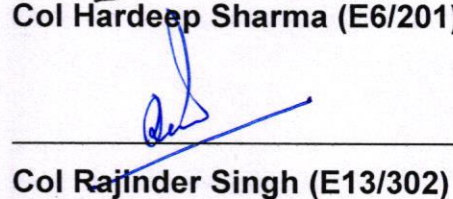 Col Hardeep Sharma (E6/201)
Col Rajinder Singh (E13/302)